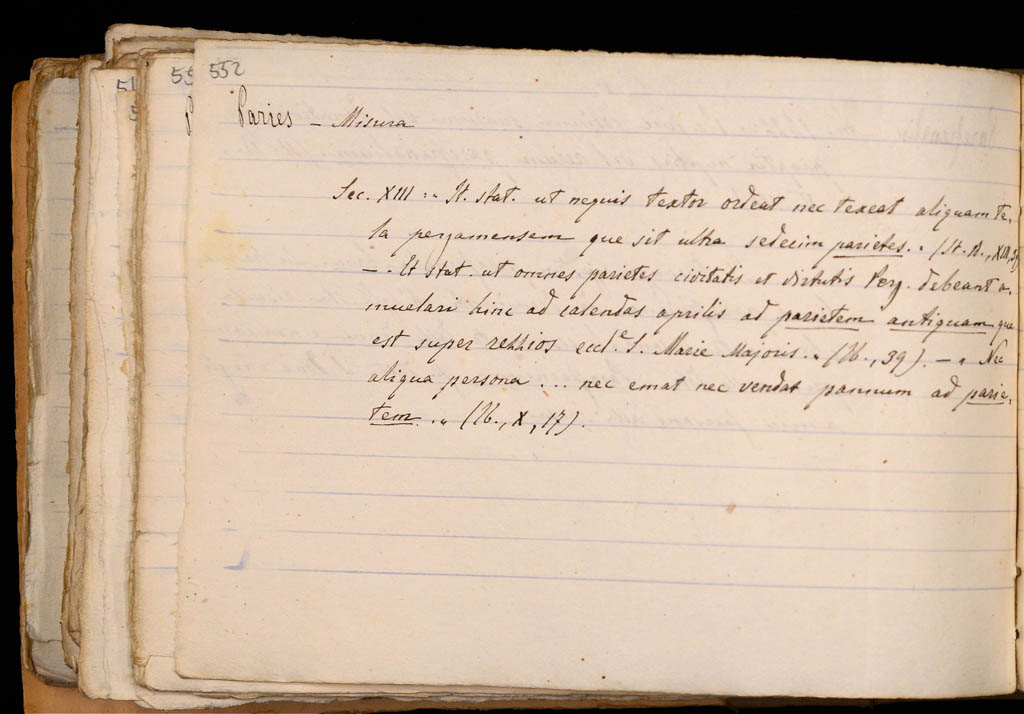 552
55
51
Paries - Misura
Sec. XIII :" It. stat. ut nequis textor ordeat nec texeat aliquam te-
la pergamensem que sit ultra sedecim parietes." (St. A., XIII,
-. Et stat. ut omnes parietes civitatis et virtutis Perg. debeant a-
muelari hinc ad calendas aprilis ad parietem antiquam que
est super eccl.e S. Marie Majoris." (Ib., 39). - " Nec
aliqua persona ... nec emat nec vendat pannum ad parie-
tem." (Ib., X, 17).